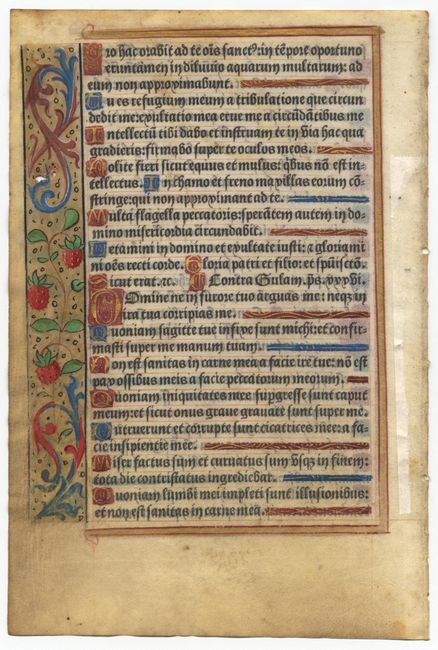 Pro hac orabit ad te oīs sanctꝰ: in tēpore oportuno
Veruntamen in diluuio aquarum multarum: ad
eum non approximabunt.
Tu es refugium meum a tribulatione que circun
dedit me: exultatio mea erue me a circūdātibus me
Intellectū tibi dabo et instruam te in via hac qua
gradieris: firmabo super te oculos meos.
Nolite fieri sicut equus et mulus: qb̄us nō est in-
tellectus. In chamo et freno maxillas eorum cō-
stringe: qui non approximant ad te.
Multa flagella peccatoris: sperātem autem in do-
mino misericordia circundabit.
Letamini in domino et exultate iusti: et gloriami
ni oēs recti corde. Gloria patri et filio: et spūi sctō.
Sicut erat. ⁊c. Contra Gulam. ps. xxxvi.
Domine ne in furore tuo arguas me: neqꝫ in
ira tua corripias me.
Quoniam sagitte tue infixe sunt michi: et confir-
masti super me manum tuam.
Non est sanitas in carne mea a facie ire tue: nō est
pax ossibus meis a facie peccatorum meorum.
Quoniam iniquitates mee suꝑgresse sunt caput
meum: et sicut onus graue grauate sunt super me.
Putruerunt et corrupte sunt cicatrices mee: a fa-
cie insipientie mee.
Miser factus sum et curuatus sum vsqꝫ in finem:
tota die contristatus ingrediebar.
Quoniam lumbi mei impleti sunt illusionibus:
et non est sanitas in carne mea.